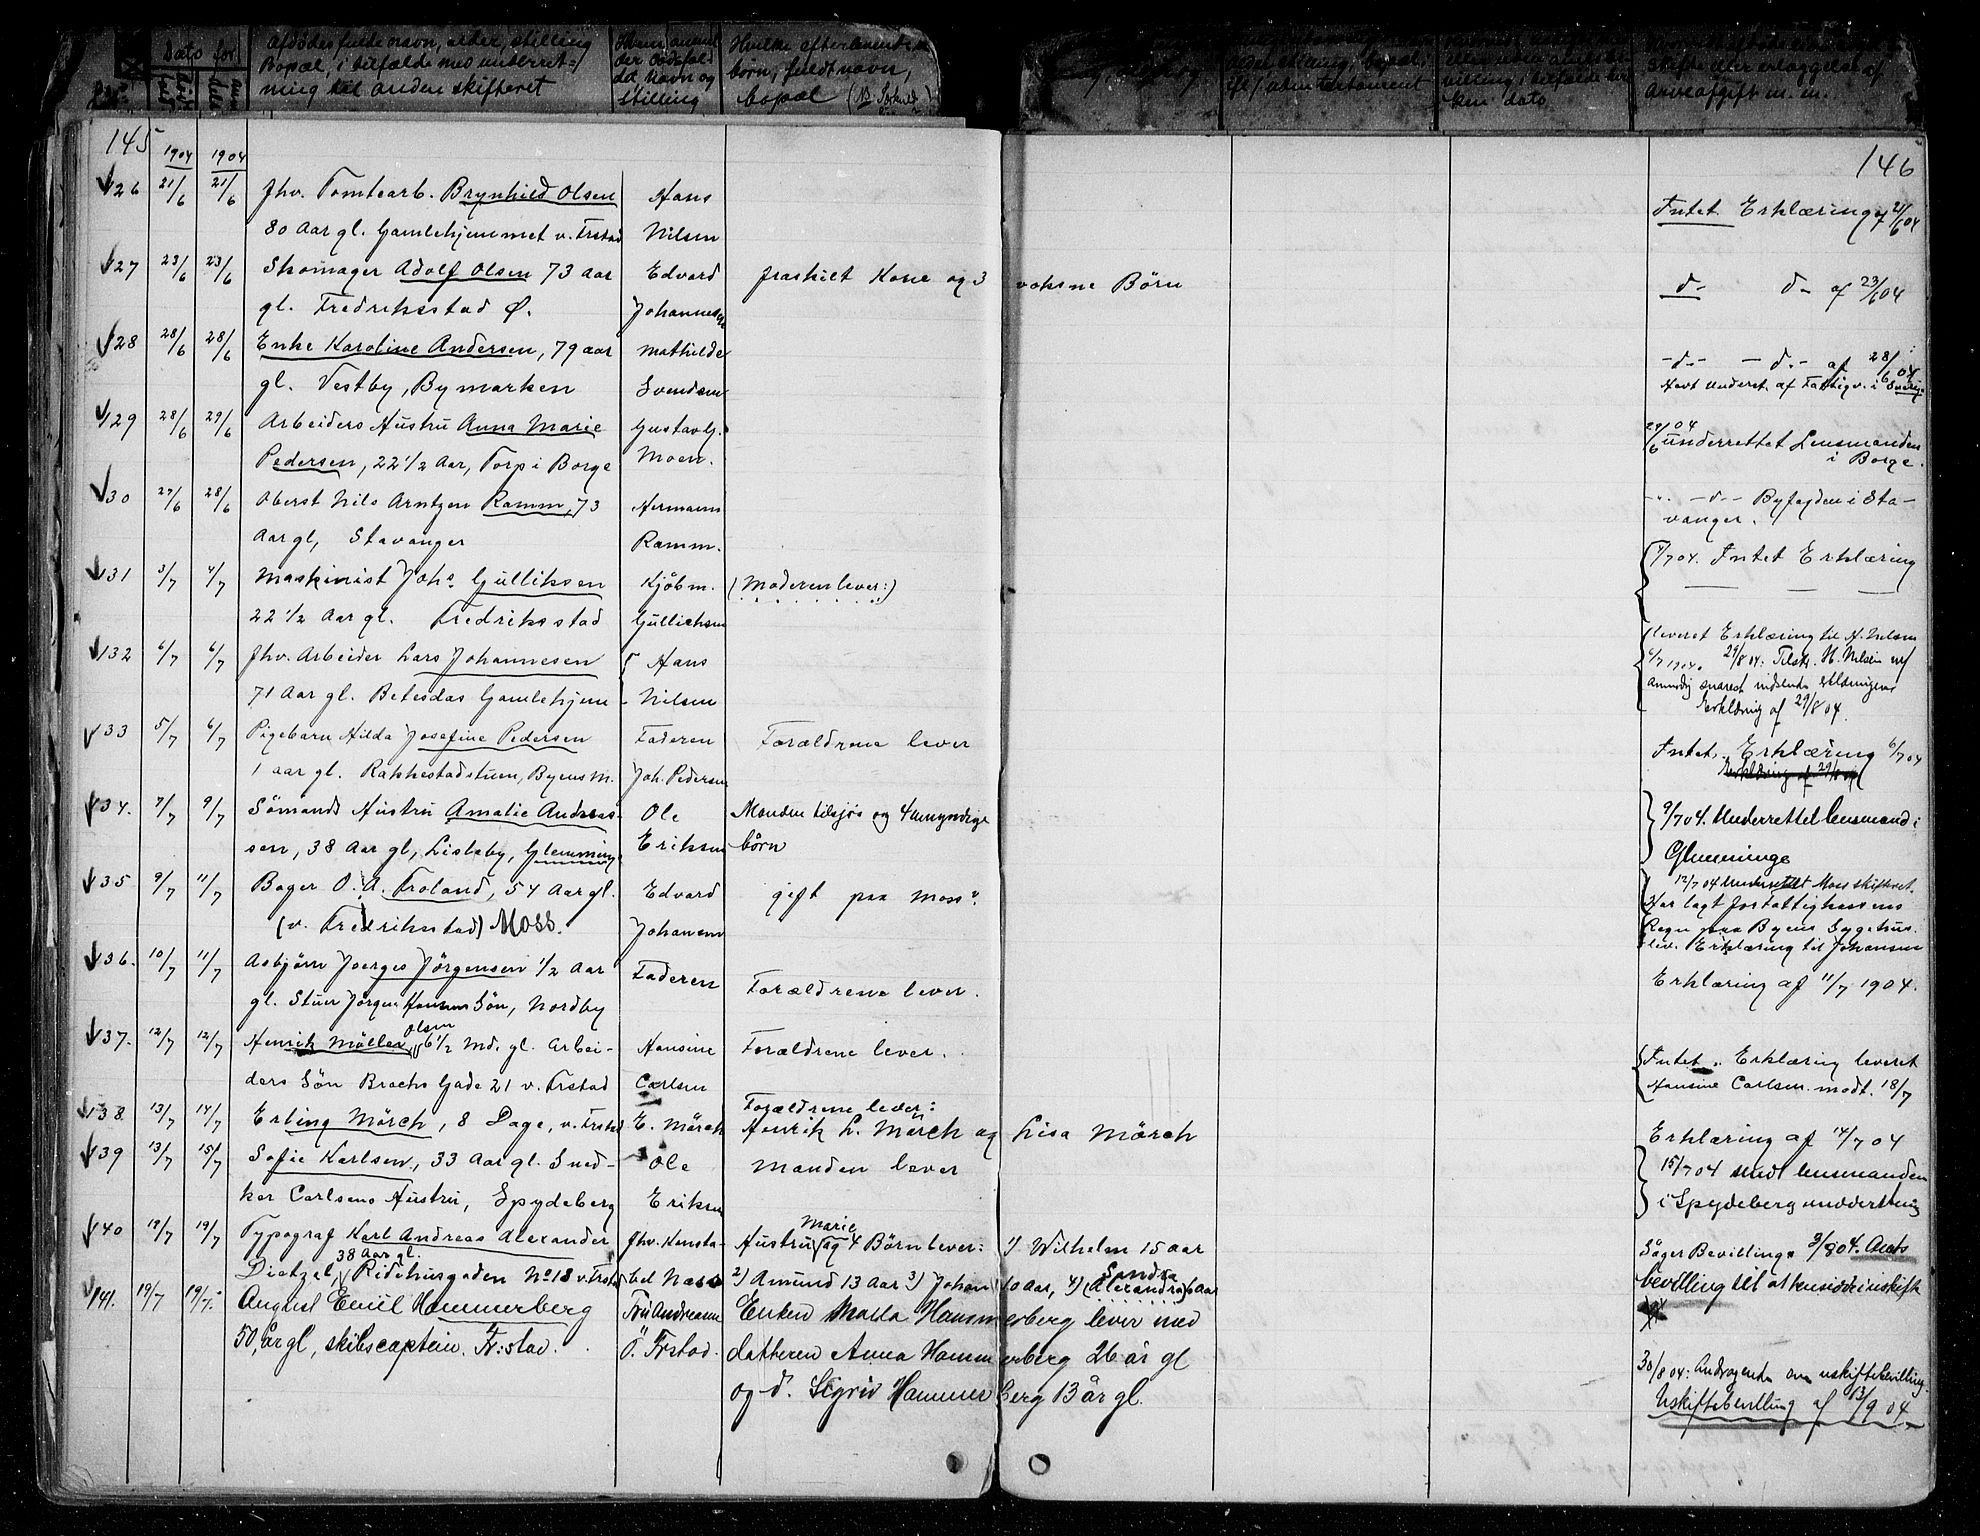 Dato for
Afdødes fulde navn, alder, stilling
Bopæl, i tilfælde med underret-
ning til anden skifteret
Hvem anmel
der dødsfal-
det Navn og
Stilling
Hvilke efterlevende
børn, fuldt navn,
bopæl
ken dato
Arveafgift m. m.
145
146
1904 1904
126 21/6 21/6 fhv. Tomtearb. Brynhild Olsen Hans Intet Erklæring af 21/6 04
80 Aar gl. Gamlehjemmet v. Frstad Nilsen
127 23/6 23/6 Skomager Adolf Olsen 73 aar Edvard fraskilt Kone og 3 voksne Børn d- d- af 23/6 04
gl. Fredriksstad Ø. Johannesen
128 28/6 28/6 Enke Karoline Andersen, 79 aar Mathilde -d- -d.- af 28/6 04
gl. Vestby, Bymarken Svendsen Havt underst. af Fattigv. i Sverige
129 28/6 29/6 Arbeiders Hustru Anna Marie Gustav G. 29/6 04 underrettet Lensmanden
Pedersen, 22 1/2 Aar, Torp i Borge Moen. i Borge.
130 27/6 28/6 Oberst Nils Arntzen Ramm, 73 Hermann -d- Byfogden i Sta-
Aar gl, Stavanger Ramm. vanger.
131 3/7 4/7 Maskinist Johs Gulliksen Kjøbm. (Moderen lever:) 4/7 04. Intet Erklæring
22 1/2 Aar gl. Fredriksstad Gullichsen
132 6/7 6/7 fhv. Arbeider Lars Johannesen Hans leveret Erklæring til H. Nilsen
6/7 1904. 29/8 04. Tilskr. H. Nilsen
71 Aar gl. Betesdas Gamlehjem Nilsen snarest indsende erklæringen
Erklæring af 29/8 04.
133 5/7 6/7 Pigebarn Hilda Josefine Pedersen Faderen Forældrene lever Intet. Erklæring 6/7 04
1 aar gl. Rakkestadstuen, Byens M. Joh. Pedersen Erklæring af 29/8 04
134. 7/7 9/7 Sømands Hustru Amalie Andreas- Ole Manden tilsjøs og 4 umyndige 9/7 04. Underrettet lensmand i
sen, 38 Aar gl, Lisleby, Glemminge Eriksen børn Glemminge
135 9/7 11/7 Bager O. A. Froland, 54 Aar gl. Edvard gift paa Moss. 12/7 04 Underrettet Moss skifteret.
Har lagt for fattighassens
(v. Fredrikstad) Moss. Johansen Regn. paa Byens Sygehus.
lev. Erklæring til Johansen
136. 10/7 11/7 Asbjørn Joerges Jörgensen 1/2 Aar Faderen Forældrene lever. Erklæring af 11/7 1904.
gl. Stuer Jørgen Hansens Søn, Nordby
137. 12/7 12/7 Henrik Møller Olsen 6 1/2 Md. gl. Arbei- Hansine Forældrene lever. Intet. Erklæring leveret
ders Søn Brochs Gade 21 v. Frstad Carlsen Hansine Carlsen. modt. 18/7
138. 13/7 14/7 Erling Mörch, 8 Dage, v. Frstad E. Mörch Forældrene lever: Henrik L. Mörch og Lisa Mörch Erklæring af 14/7 04
139 13/7 15/7 Sofie Karlsen, 33 Aar gl. Sned- Ole Manden lever 15/7 04 sendt lensmanden
ker Carlsens Hustru, Spydeberg Eriksen i Spydeberg underretning
140 19/7 19/7 Typograf Karl Andreas Alexander fhv. Konsta- Hustru Marie og 4 Børn lever: 1) Wilhelm 15 aar Söger Bevilling. 3/8 04.
Dietzel, 38 Aar gl. Ridehusgaden No 18 v. Frstad bel Næss 2) Amund 13 Aar 3) Johan 10 aar, 4) Sandra (Alexandra) 6 aar bevilling til at hensidde i uskifte
141. 19/7 19/7. August Emil Hammerberg Fru Andreasen Enken Malla Hammerberg lever med
50 år gl, skibscaptein. Fr:stad. Ö. Frstad. datteren Anna Hammerberg 26 år gl 30/8 04: Andragende om uskiftebevilling.
og d. Sigrid Hammerberg 13 år gl. Uskiftebevilling af 13/9 04.